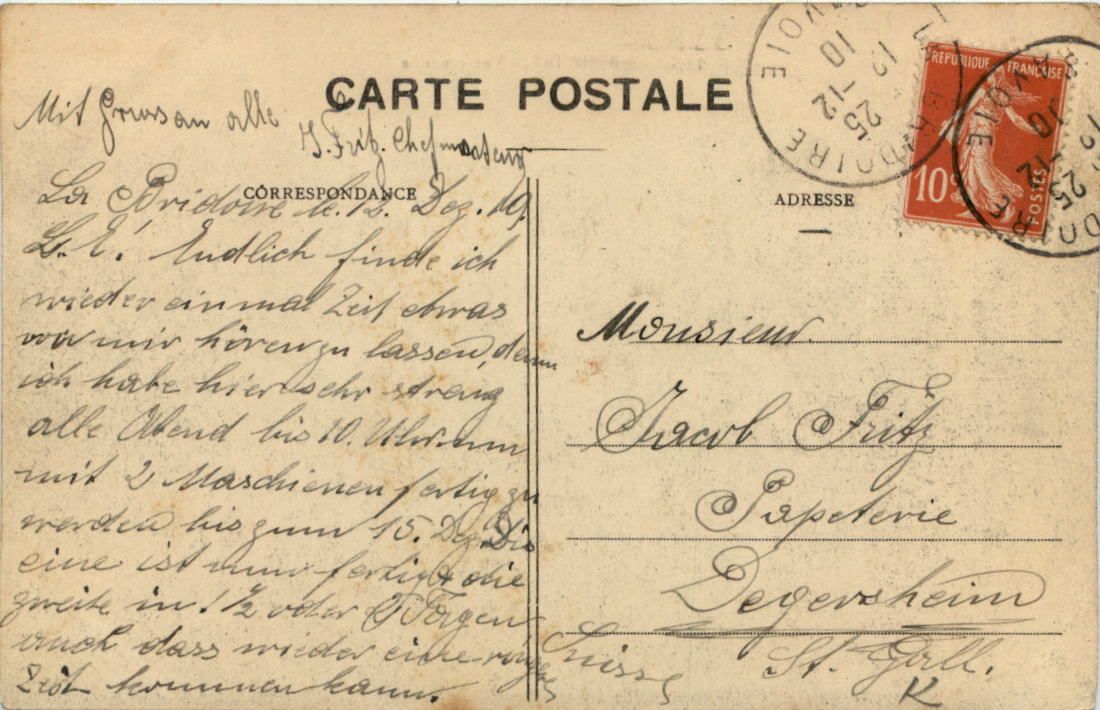 CARTE POSTALE
Mit Grussan alle
J. Fritz. Chefmonteur
CORRESPONDANCE
La Bridoire le. 12. Dez. 10.
L. E! Endlich finde ich
wieder einmal Zeit etwas
von mir hören zu lassen, denn
ich habe hier sehr streng
alle Abend bis 10. Uhr um
mit 2 Maschienen fertig zu
werden bis zum 15. Dez. Die
eine ist nun fertig & die
zweite in 1 1/2 oder 2 Tagen
auch dass wieder eine ruhige
Zeit kommen kann.
ADRESSE
Monsieur.
Jacob Fritz
Papeterie
Degersheim
St. Gall.
Suisse
K
LA BRIDOIRE
SAVOIE
12 -12
10
REPUBLIQUE FRANÇAISE
10c
POSTES
BRIDOIRE
SAVOIE
10